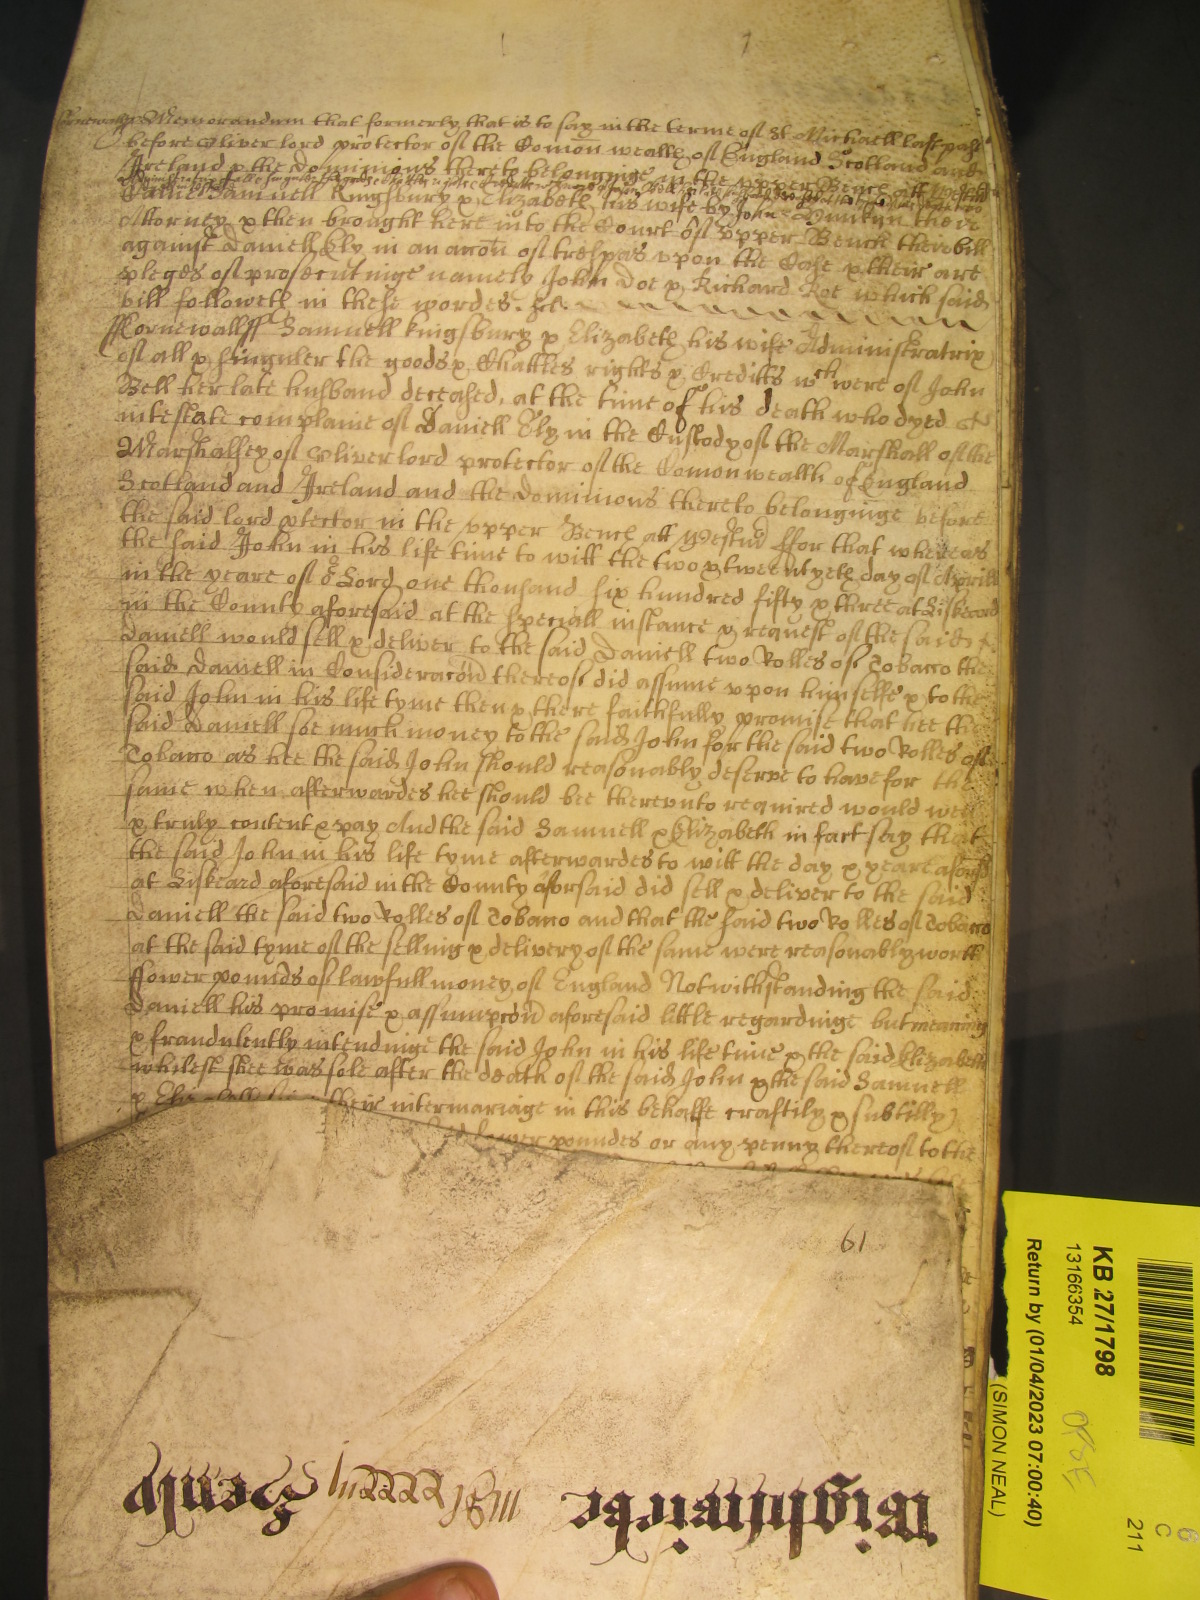 Cornewall ss Memorandum that formerly that is to say in the terme of St Michaell last past
before Oliver lord protector of the Comon wealth of England Scotland and
Ireland & the dominions thereto belonginge in the upper Bench att Westm
Came Samuell Kingsbury & Elizabeth his wife by John Hunkyn their
Attorney & then brought here into the Court of upper Bench there bill
against Daniell Ely in an accon of trespas upon the Case & their are
pleges of prosecutinge namely John Doe & Richard Roe which said
bill followeth in these wordes. sct.
Cornewall ss Samuell Kingsbury & Elizabeth his wife Administratrix
of all & singuler the goods & Chattes rights & Creditts wch were of John
Bell her late husband deceased, at the time of his death who dyed
intestate complaine of Daniell Ely in the Custody of the Marshall of the
Marshalsey of Oliver lord protector of the Comonwealth of England
Scotland and Ireland and the dominions thereto belonginge before
the said lord ptector in the upper Bench att Westm ffor that whereas
the said John in his life time to witt the two & twentyeth day of Aprill
in the yeare of or Lord one thousand six hundred fifty & three at Liskeard
in the County aforesaid at the speciall instance & request of the said
Daniell would sell & deliver to the said Daniell two Rolles of Tobacco the
said Daniell in Consideracon thereof did assume upon himselfe & to the
said John in his life tyme then & there faithfully promise that hee the
said Daniell soe much money to the said John for the said two Rolles of
Tobacco as hee the said John should reasonably deserve to have for the
same when afterwardes hee should bee thereunto required would well
& truly content & pay And the said Samuell & Elizabeth in fact say that
the said John in his life tyme afterwardes to witt the day & yeare aforesd
at Liskeard aforesaid in the County aforsaid did sell & deliver to the said
Daniell the said two Rolles of Tobacco and that the said two Rolles of Tobacco
at the said tyme of the selling & delivery of the same were reasonably worth
ffower pounds of lawfull money of England Notwithstanding the said
Daniell his promise & assumpcon aforesaid little regardinge but meaning
& fraudulently intendinge the said John in his life time & the said Elizabeth
whilest shee was sole after the death of the said John & the said Samuell
& their intermariage in this behalfe craftily & subtilly
fower poundes or any penny thereof to the
61
Wightwicke
KB 27/1798
13166354
Return by (01/04/2023 07:00:40)
(SIMON NEAL)
6
C
211